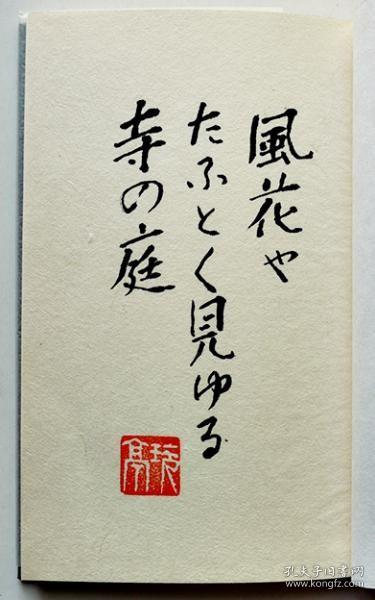 風花や
たふとく見ゆる
寺の庭
孔夫子旧书网
www.kongfz.com